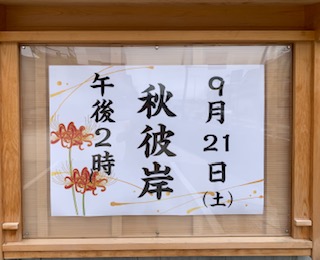 9月21日(土)
秋彼岸
午後2時